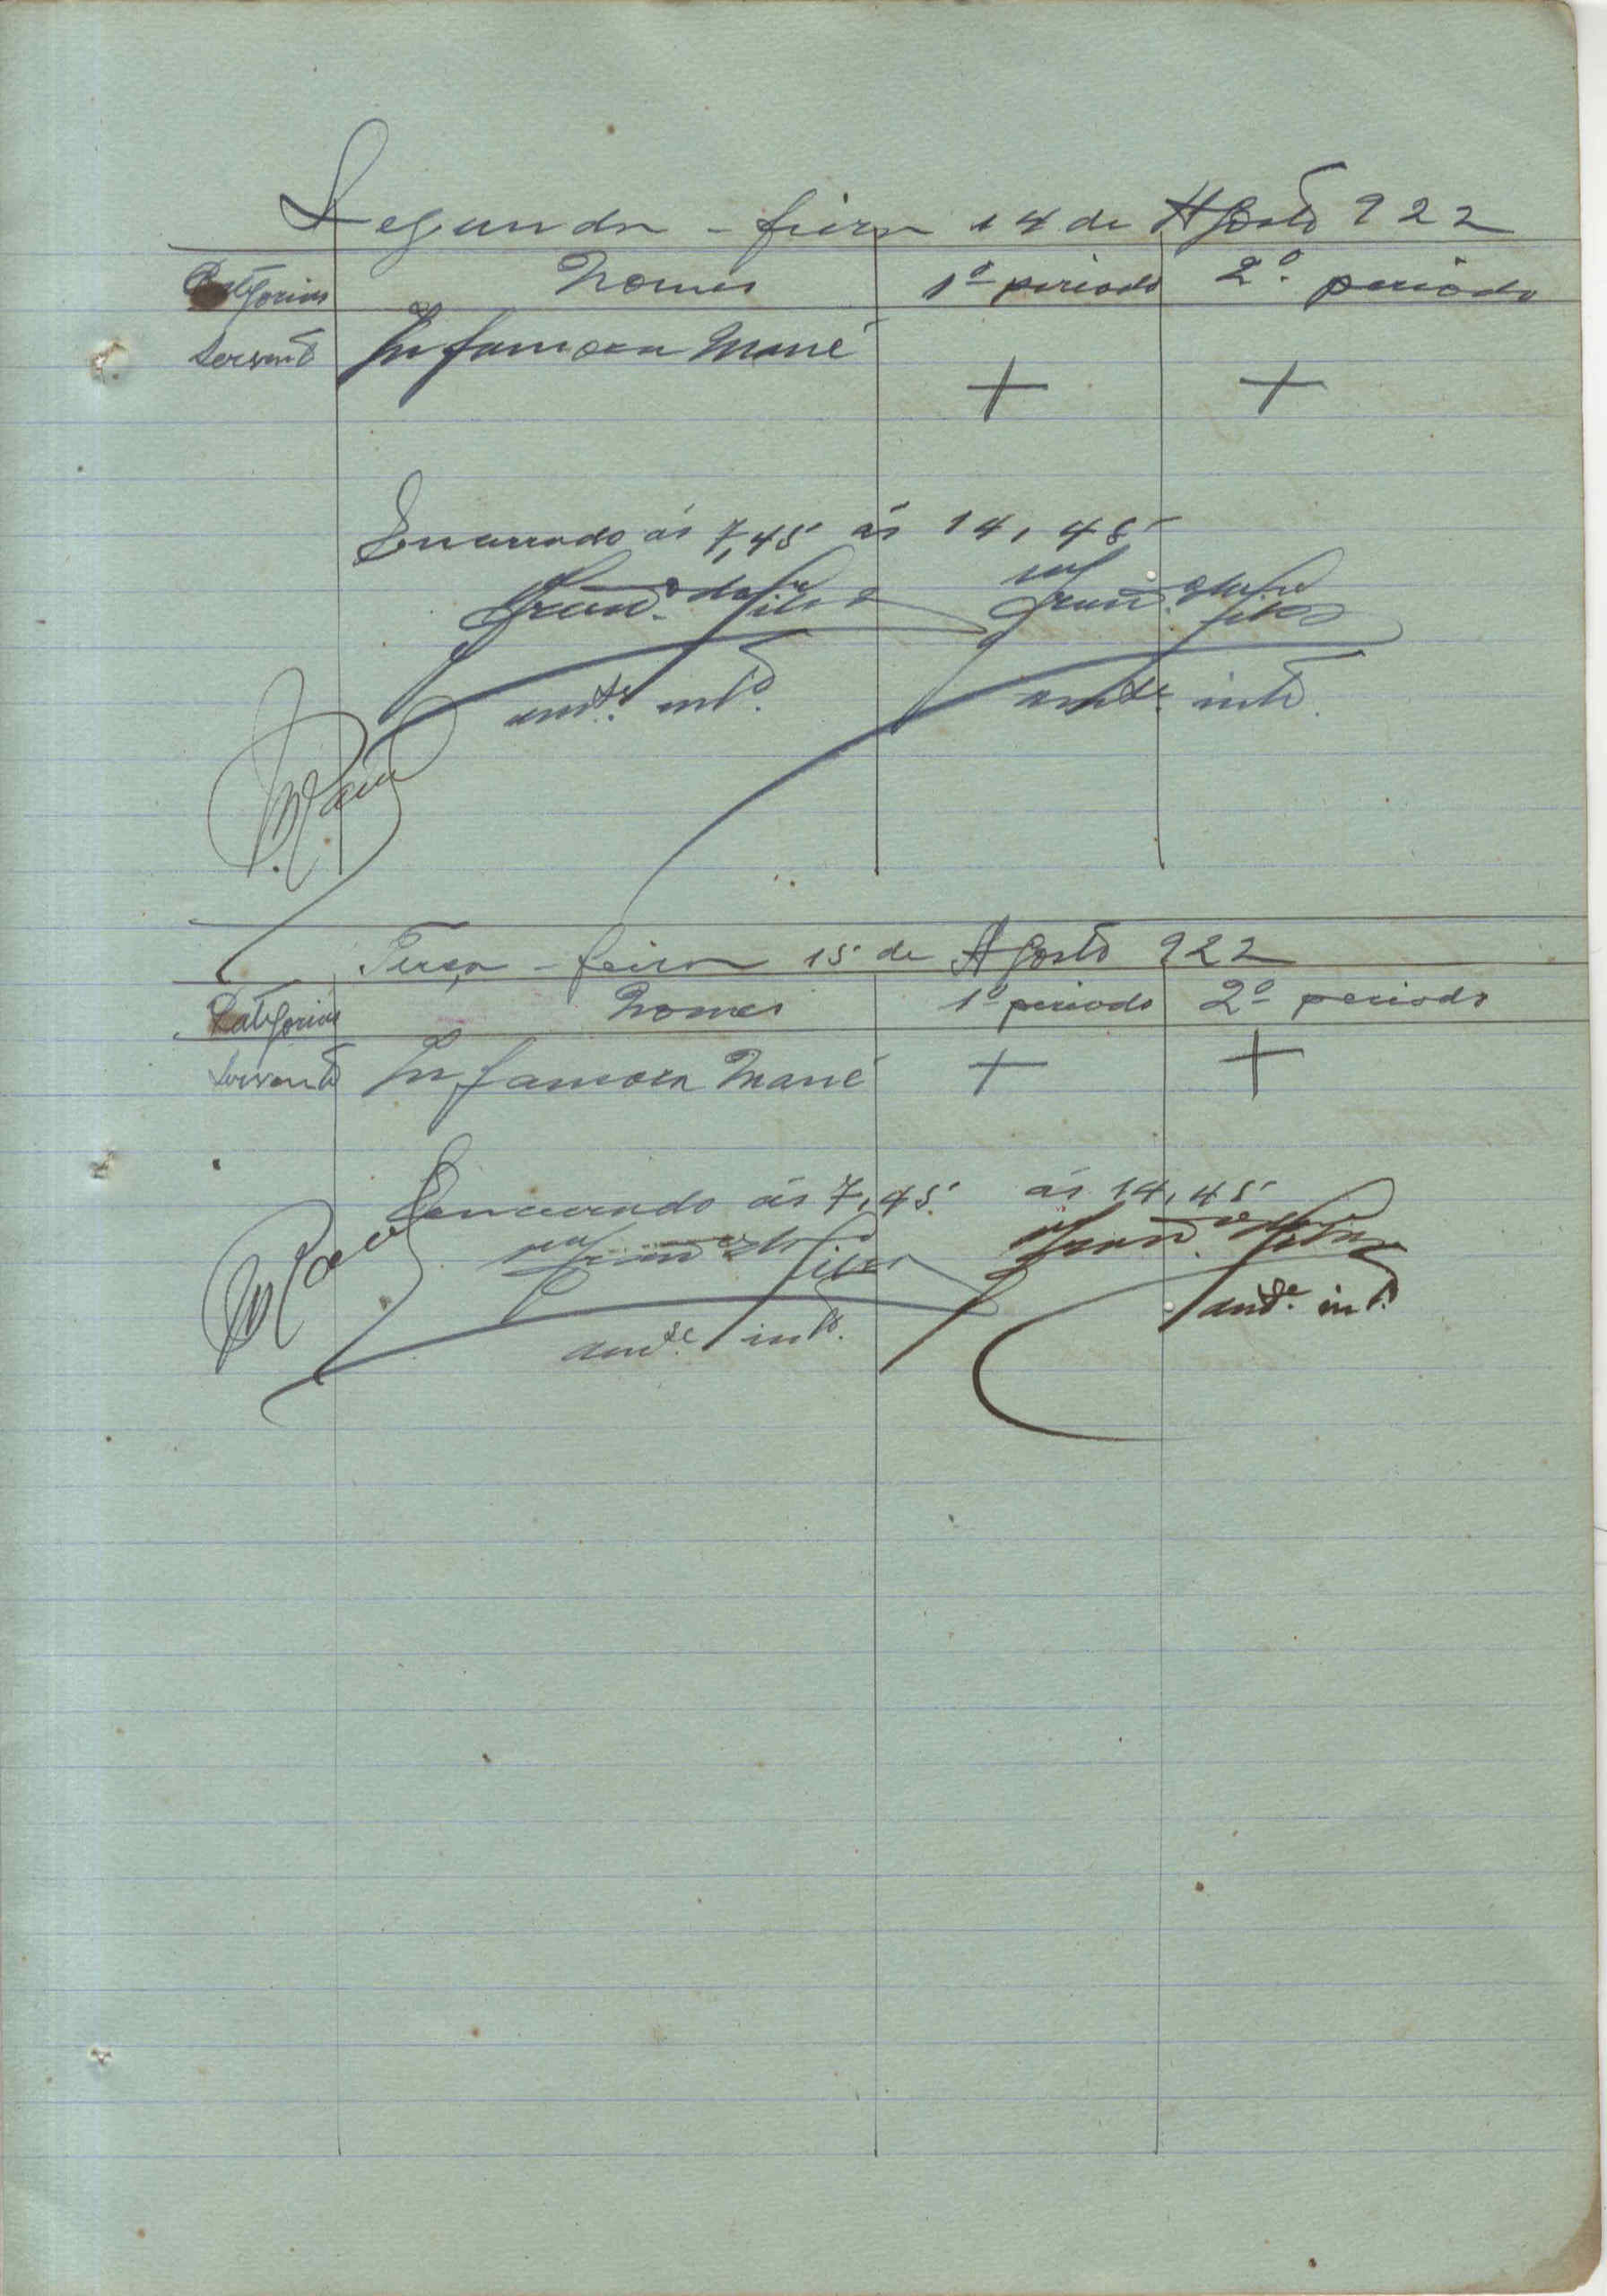 Segunda-feira 14 de Agosto 922
Categorias Nomes 1º periodo 2º periodo
Servente Infamara Mané + +
Encerrado ás 7,45 ás 14,45
Silva Silva
int.º int.º
Terça-feira 15 de Agosto 922
Categorias Nomes 1º periodo 2º periodo
Servente Infamara Mané + +
Encerrado ás 7,45 ás 14,45
Silva Silva
int.º int.º